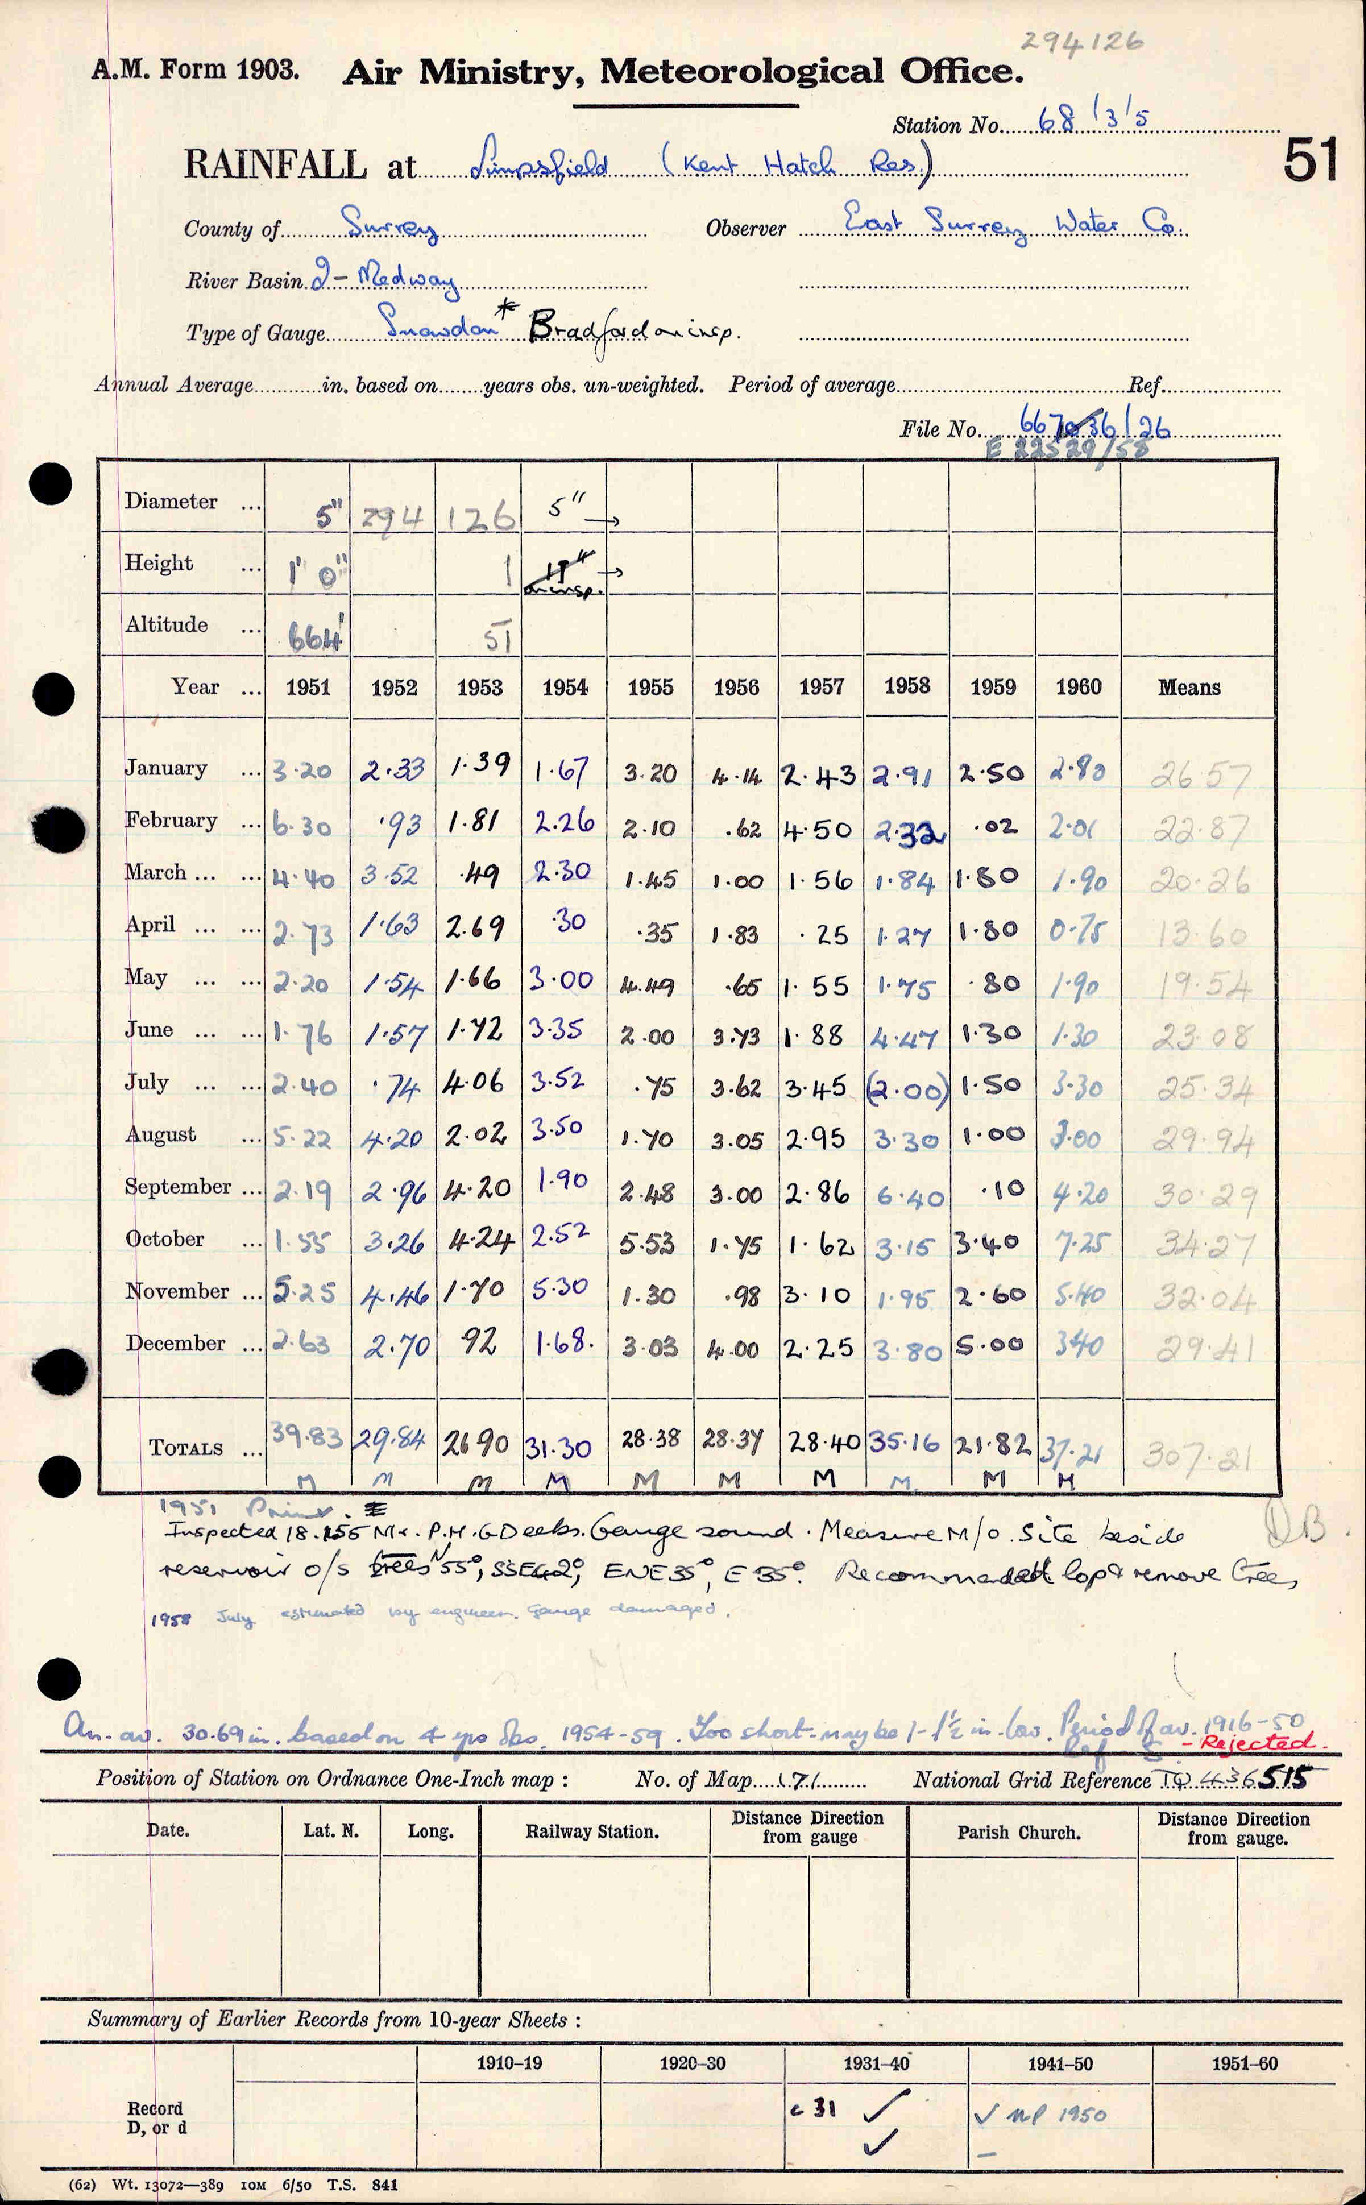 294126
A.M. Form 1903. Air Ministry, Meteorological Office.
Station No. 68/3/5
51
RAINFALL at Limpsfield (Kent Hatch Res.)
County of Surrey Observer East Surrey Water Co.
River Basin 2- Medway
Type of Gauge Snowdon* Bradford on insp.
Annual Average in. based on years obs. un-weighted. Period of average Ref.
File No. 667036/26
E 22529/58
Diameter ... 5" 294 126 5" →
Height ... 1' 0" 1 11" on insp. →
Altitude ... 664' 51
Year ... 1951 1952 1953 1954 1955 1956 1957 1958 1959 1960 Means
January ... 3.20 2.33 1.39 1.67 3.20 4.14 2.43 2.91 2.50 2.80 26.57
February ... 6.30 .93 1.81 2.26 2.10 .62 4.50 2.32 .02 2.01 22.87
March ... ... 4.40 3.52 .49 2.30 1.45 1.00 1.56 1.84 1.80 1.90 20.26
April ... ... 2.73 1.63 2.69 .30 .35 1.83 .25 1.27 1.80 0.75 13.60
May ... ... 2.20 1.54 1.66 3.00 4.49 .65 1.55 1.75 .80 1.90 19.54
June ... ... 1.76 1.57 1.72 3.35 2.00 3.73 1.88 4.47 1.30 1.30 23.08
July ... ... 2.40 .74 4.06 3.52 .75 3.62 3.45 (2.00) 1.50 3.30 25.34
August ... 5.22 4.20 2.02 3.50 1.70 3.05 2.95 3.30 1.00 3.00 29.94
September ... 2.19 2.96 4.20 1.90 2.48 3.00 2.86 6.40 .10 4.20 30.29
October ... 1.55 3.26 4.24 2.52 5.53 1.75 1.62 3.15 3.40 7.25 34.27
November ... 5.25 4.46 1.70 5.30 1.30 .98 3.10 1.95 2.60 5.40 32.04
December ... 2.63 2.70 .92 1.68. 3.03 4.00 2.25 3.80 5.00 3.40 29.41
TOTALS ... 39.83 29.84 26.90 31.30 28.38 28.37 28.40 35.16 21.82 37.21 307.21
M M M M M M M M M M
1951
Inspected 18.1.55 Mr. P.H.G Deeks. Gauge sound. Measure M/o. Site beside
DB.
reservoir o/s trees N 55°, SSE 42°, ENE 35°, E 35°. Recommended lop & remove trees
1958 July estimated by engineer. Gauge damaged.
An. av. 30.69 in. based on 4 yrs obs. 1954-59. Too short - maybe 1-1½ in. low. Period of av. 1916-50
Ref - Rejected.
Position of Station on Ordnance One-Inch map : No. of Map 171 National Grid Reference TQ 436515
Date. Lat. N. Long. Railway Station. Distance Direction from gauge Parish Church. Distance Direction from gauge.
Summary of Earlier Records from 10-year Sheets :
1910–19 1920–30 1931–40 1941–50 1951–60
Record c 31 ✓ ✓ np 1950
D, or d ✓ –
(62) Wt. 13072—389 10M 6/50 T.S. 841